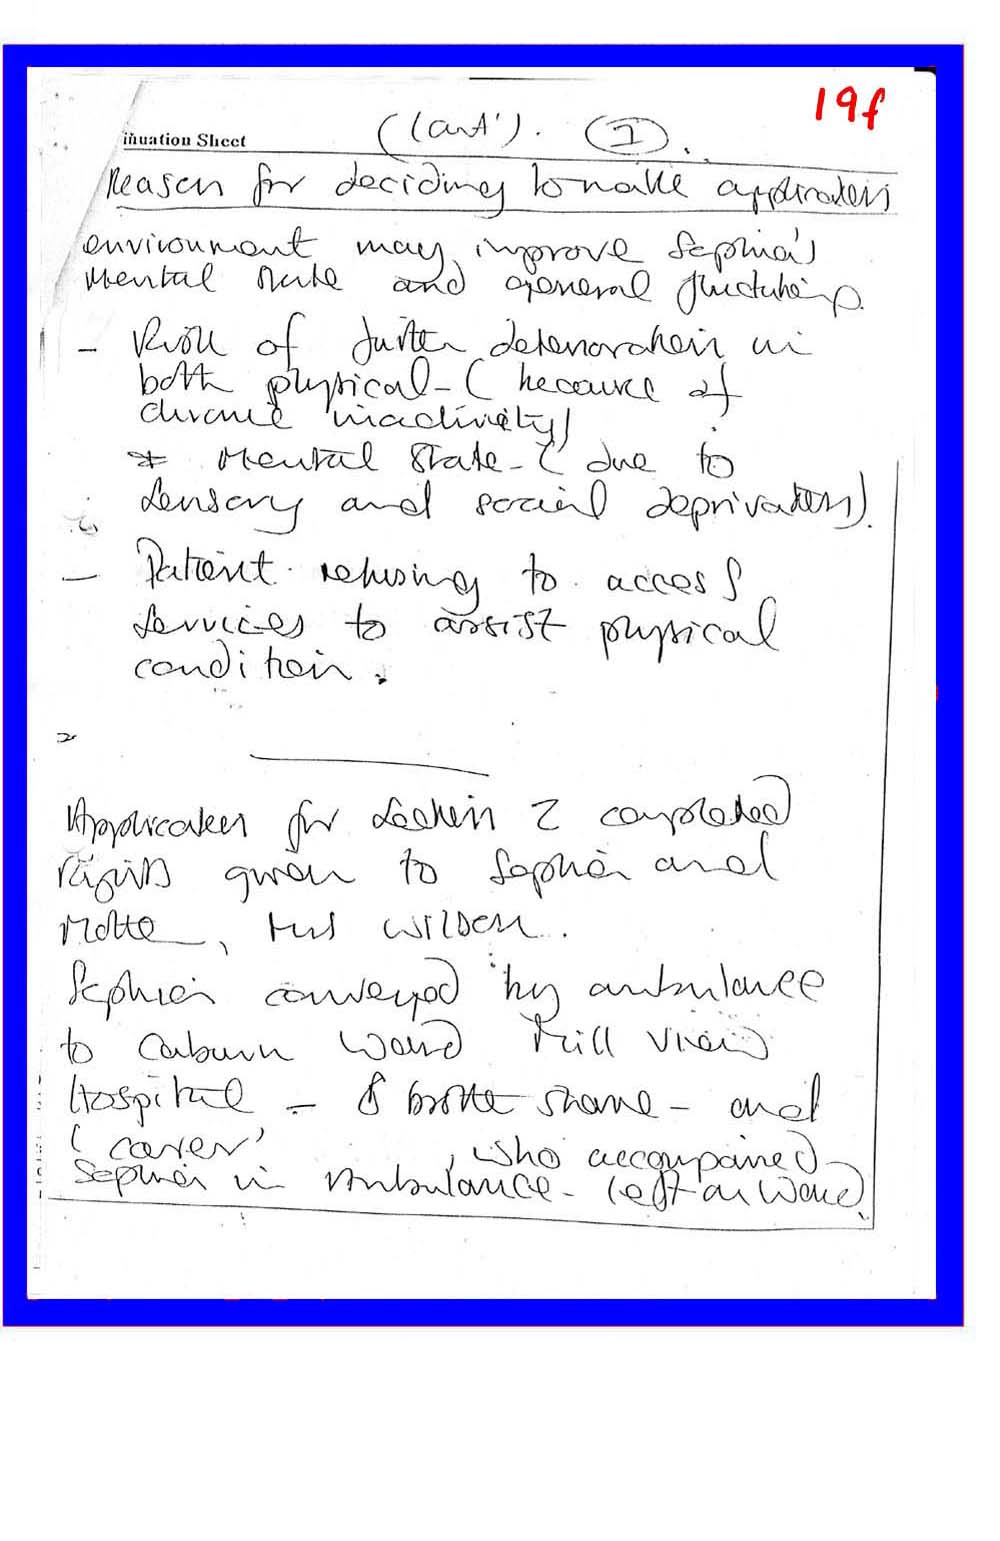 19f
(Cont'). (I).
inuation Sheet
Reason for deciding to make application
environment may improve Sophia's
mental state and general functioning.
- Risk of further deterioration in
both physical - (because of
chronic inactivity)
* Mental State - (due to
sensory and social deprivation).
- Patient refusing to access
services to assist physical
condition.
Application for Section 2 completed
rights given to Sophia and
Mother, Mrs Wilson.
Sophia conveyed by ambulance
to Caburn Ward Mill View
Hospital - & brother Shane - and
'carer', who accompanied
Sophia in Ambulance - left on ward.